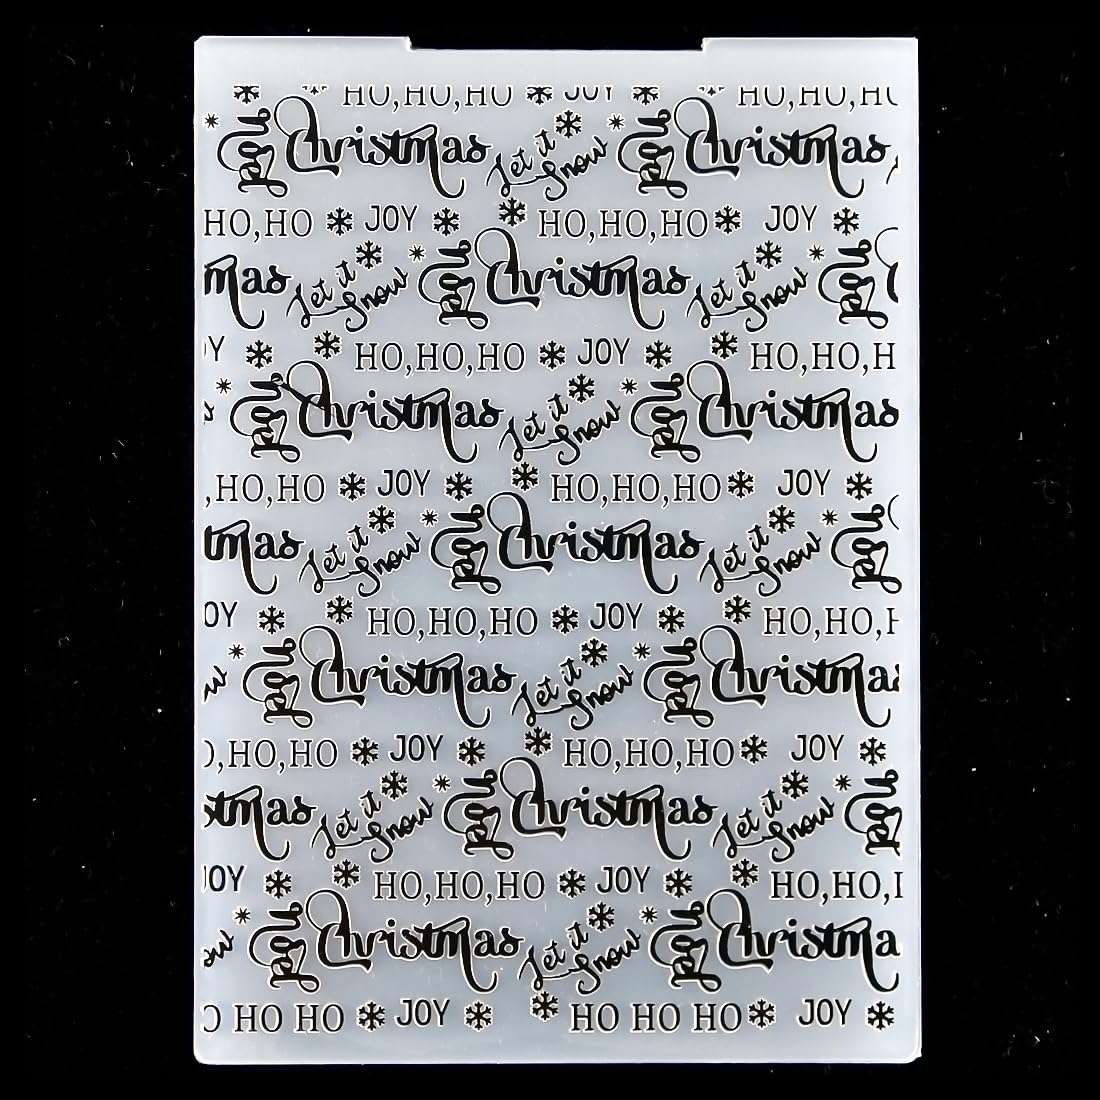 HO,HO,HO JOY HO,HO,HO
Noel Christmas Let it Snow Noel Christmas
HO,HO JOY HO,HO,HO JOY
mas Let it Snow Noel Christmas Let it Snow Noel
Y HO,HO,HO JOY HO,HO,H
Noel Christmas Let it Snow Noel Christmas
,HO,HO JOY HO,HO,HO JOY
tmas Let it Snow Noel Christmas Let it Snow Noel
OY HO,HO,HO JOY HO,HO,H
w Noel Christmas Let it Snow Noel Christmas
O,HO,HO JOY HO,HO,HO JOY
stmas Let it Snow Noel Christmas Let it Snow Noel
JOY HO,HO,HO JOY HO,HO,H
ow Noel Christmas Let it Snow Noel Christma
O HO HO JOY HO HO HO JOY